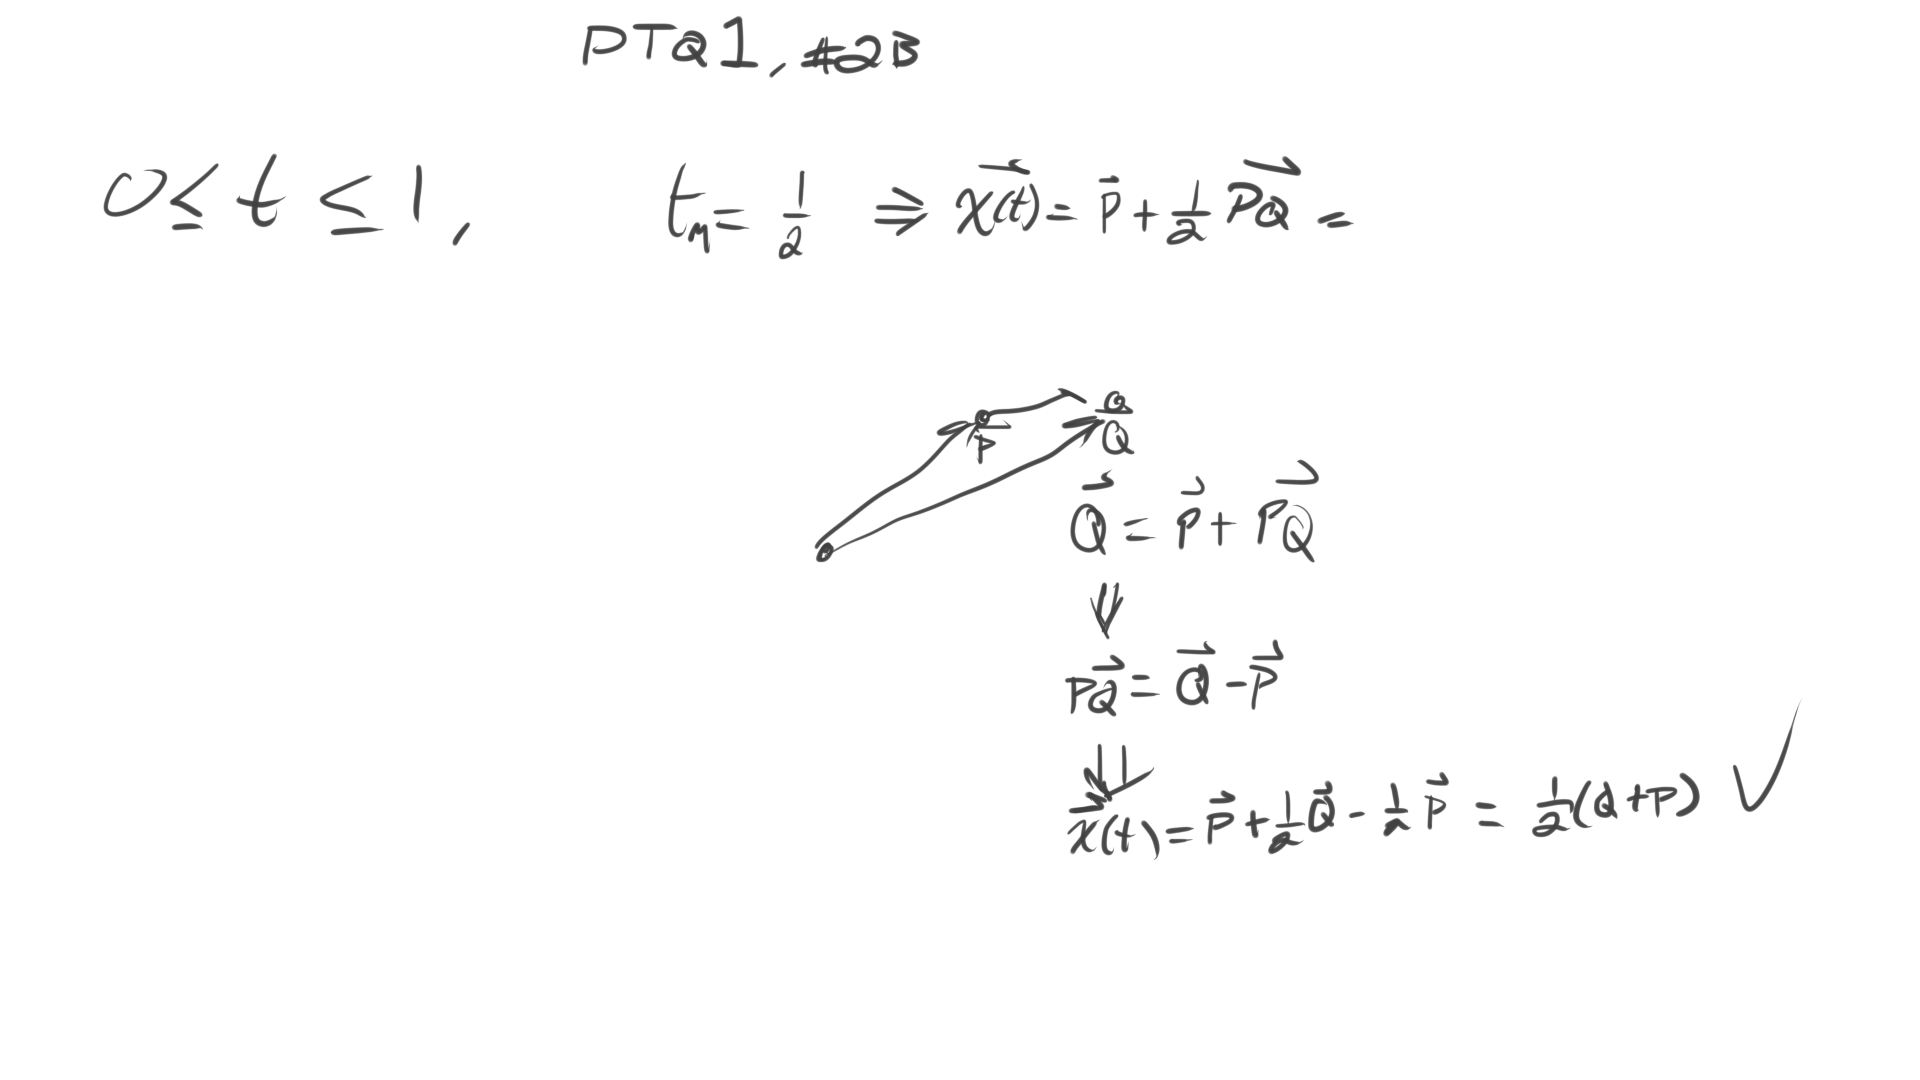 PTQ1, #2B
0 ≤ t ≤ 1, t_m = 1/2 ⇒ x⃗(t) = P⃗ + 1/2 P⃗Q⃗ =
Q
P
Q
Q⃗ = P⃗ + P⃗Q⃗
⇓
P⃗Q⃗ = Q⃗ - P⃗
⇓
x⃗(t) = P⃗ + 1/2 Q⃗ - 1/2 P⃗ = 1/2 (Q + P) ✓